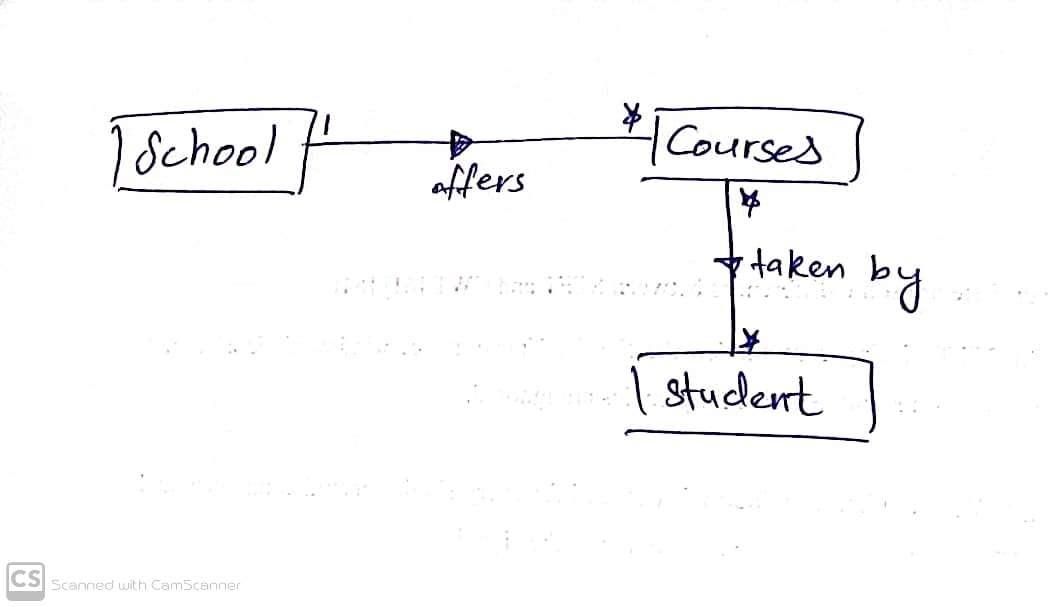 School
1
offers
*
Courses
*
taken by
*
student
CS Scanned with CamScanner